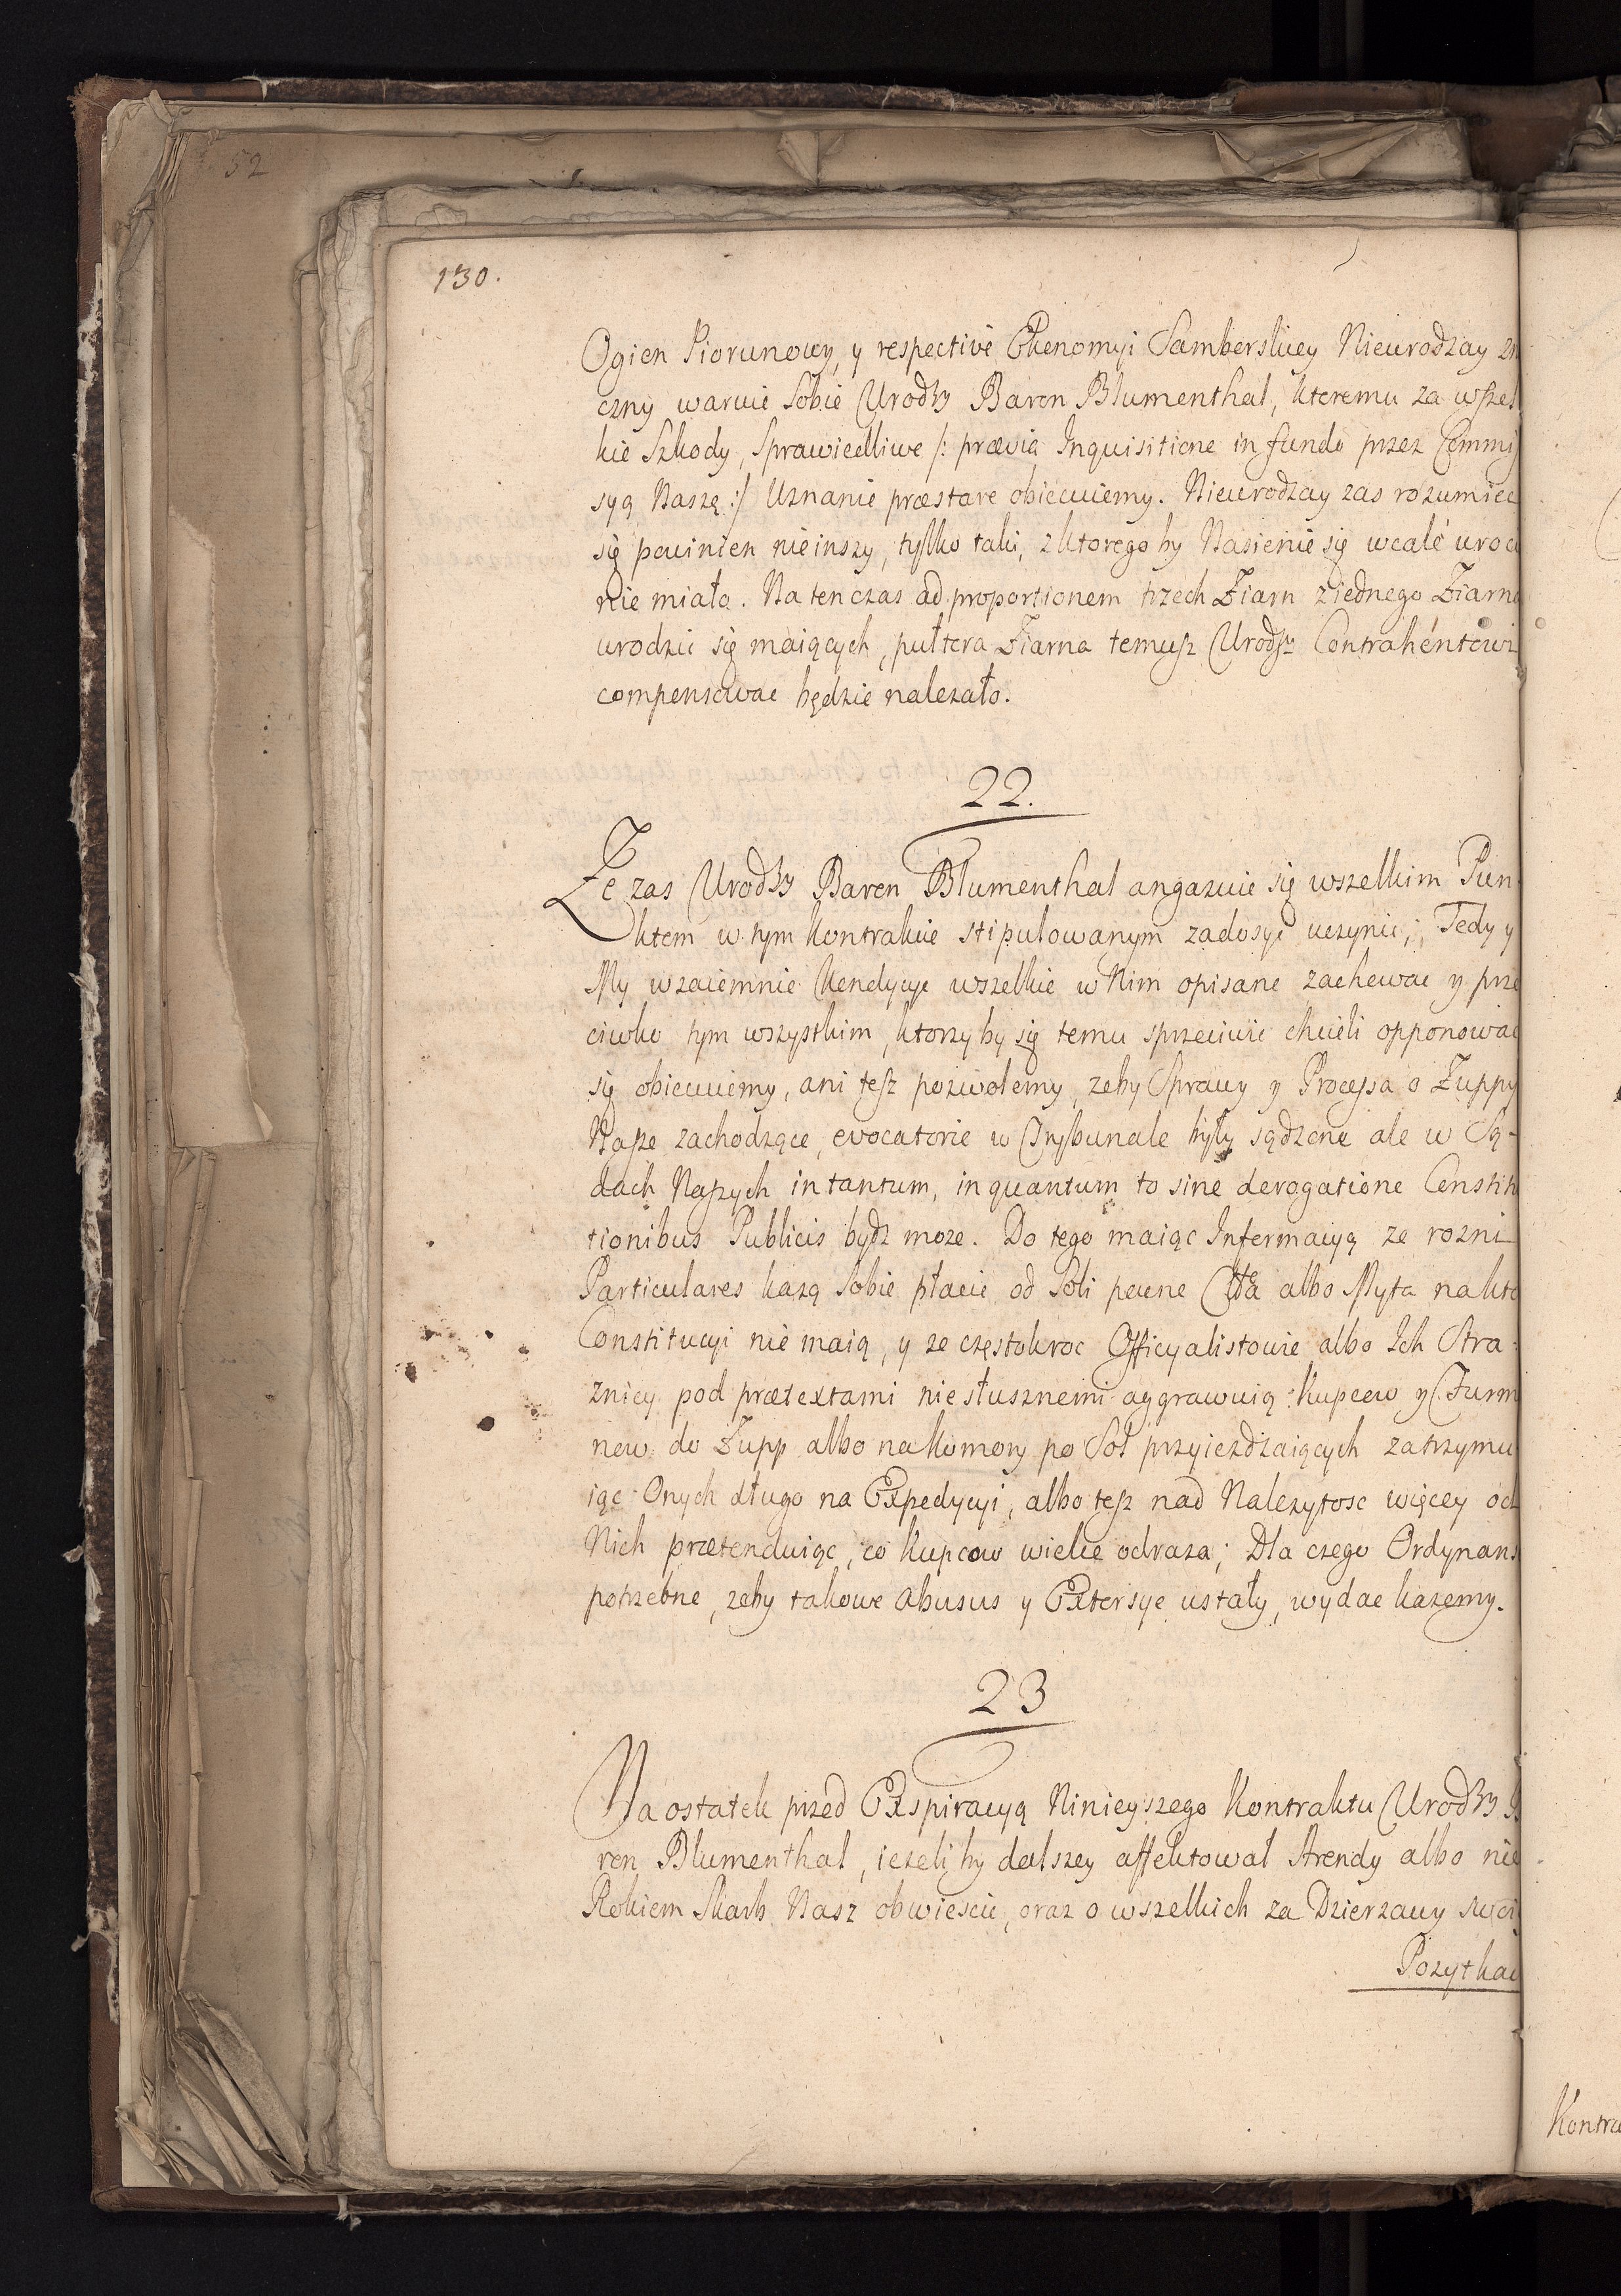 52
130.
Ogien Piorunowy, y respective Ekonomyi Samborskiey Nieurodzay zn
czny waruie Sobie Urodzy Baron Blumenthal, ktoremu za wszel
kie Szkody, Sprawiedliwe /: prævia Inquisitione in fundo przez Commis
syą Naszę :/ Uznanie præstare obiecuiemy. Nieurodzay zas rozumiec
się powinien nieinszy, tylko taki, z ktorego by Nasienie się wcale uroc
nie miało. Na ten czas ad proportionem trzech Ziarn z iednego Ziarna
urodzic się maiących, pułtora Ziarna temusz Urodz. Contrahentowi
compensowac będzie nalezało.
22.
Ze zas Urodzy Baron Blumenthal angazuie się wszelkim Pun
ktom w tym kontrakcie stipulowanym zadosyc uczynic; Tedy y
My wzaiemnie Kondycye wszelkie w Nim opisane zachowac y prze
ciwko tym wszystkim, ktorzy by się temu sprzeciwic chcieli opponowac
się obiecuiemy, ani tesz pozwolemy, zeby Sprawy y Processa o Zuppy
Nasze zachodzące, evocatorie w Trybunale były sądzone ale w Są-
dach Naszych in tantum, in quantum to sine derogatione Constitu
tionibus Publicis bydz moze. Do tego maiąc Informacyą ze rozni
Particulares kazą Sobie płacic od Soli pewne Cła albo Myta na kto
Constitucyi nie maią, y ze częstokroc Officyalistowie albo Ich Stra-
znicy pod prætextami niesłusznemi aggrawuią Kupcow y Furm
now do Zupp albo na Komory po Sol przyiezdzaiących zatrzymu
iąc Onych długo na Expedycyi, albo tesz nad Nalezytosc więcey od
Nich prætenduiąc, co Kupcow wielce odraza; Dla czego Ordynans
potrzebne, zeby takowe Abusus y Extorsye ustały, wydac kazemy.
23
Na ostatek przed Exspiracyą Ninieyszego Kontraktu Urodzy B
ron Blumenthal, iezeli by dalszey affektował Arendy albo nie
Rokiem Skarb Nasz obwiescic, oraz o wszelkich za Dzierzawy swoi
Pozytkac
Kontra